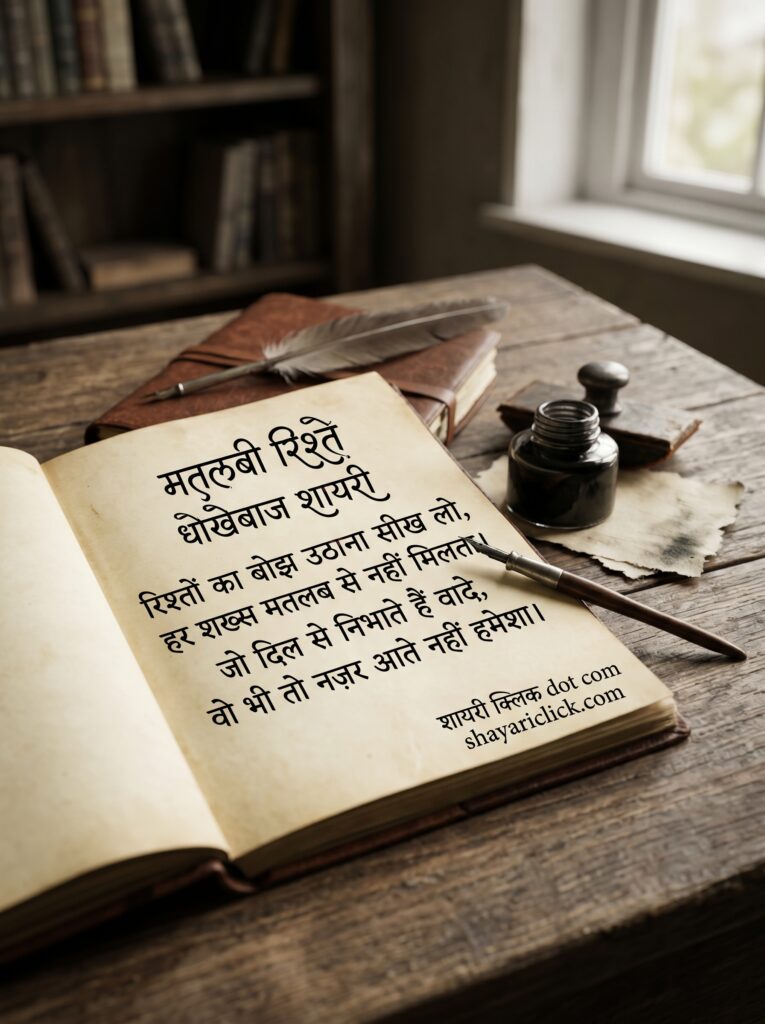 मतलबी रिश्ते
धोखेबाज शायरी
रिश्तों का बोझ उठाना सीख लो,
हर शख्स मतलब से नहीं मिलता।
जो दिल से निभाते हैं वादे,
वो भी तो नज़र आते नहीं हमेशा।
शायरी क्लिक dot com
shayariclick.com